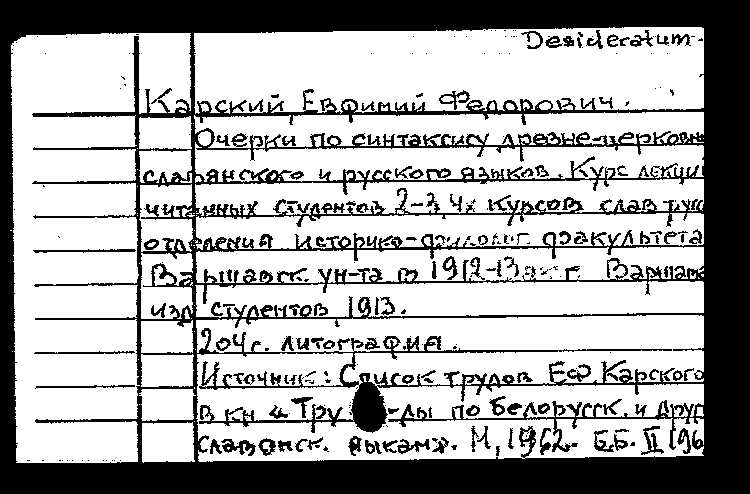 Desideratum.
Карский, Евфимий Федорович.
Очерки по синтаксису древне-церковно
славянского и русского языков. Курс лекций
читанных студентов 2-3, 4х курсов слав рус
отделения историко-филолог. факультета
Варшавск. ун-та в 1912-13 г. Варшава
изд студентов, 1913.
204 с. литография.
Источник: Список трудов Е.Ф. Карского
в кн "Тру -ды по белорусск. и друг
славянск. языкам". М, 1962. Б.Б. II 196